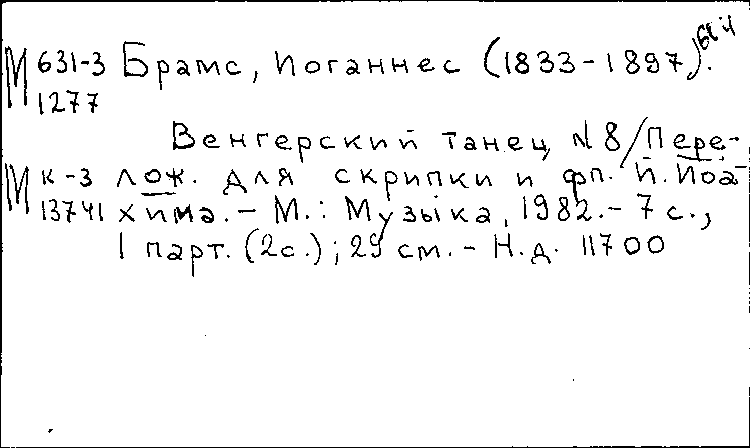 М 631-3 Брамс, Иоганнес (1833-1897).
1277
Венгерский танец N 8/Пере-
М к-3 лож. для скрипки и фп. Й. Йоа-
13741 хима. - М.: Музыка, 1982. - 7 с.,
1 парт. (2с.); 29 см. - Н.д. 11700